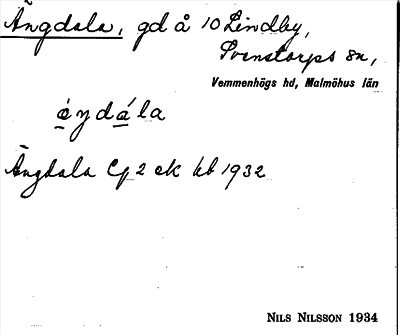 Ängdala, gd å 10 Lindby,
Svenstorps sn,
Vemmenhögs hd, Malmöhus län
Ängdala 2 ek kb 1932
NILS NILSSON 1934